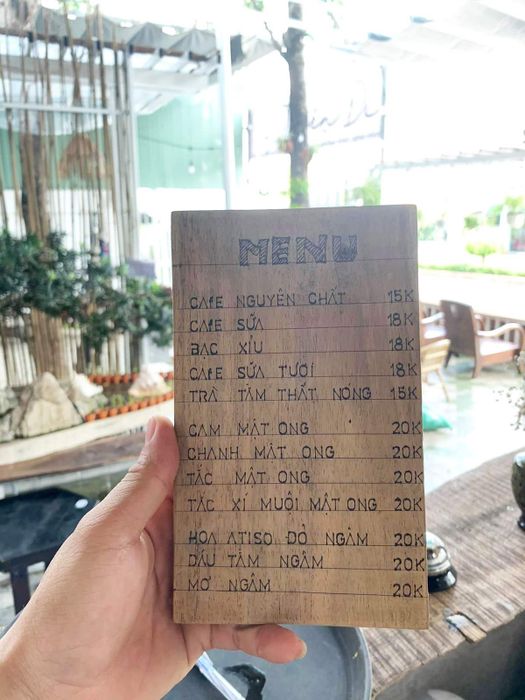 MENU
CAFE NGUYÊN CHẤT 15K
CAFE SỮA 18K
BẠC XỈU 18K
CAFE SỮA TƯƠI 18K
TRÀ TÂM THẤT NÓNG 15K
CAM MẬT ONG 20K
CHANH MẬT ONG 20K
TẮC MẬT ONG 20K
TẮC XÍ MUỘI MẬT ONG 20K
HOA ATISO ĐỎ NGÂM 20K
DÂU TẰM NGÂM 20K
MƠ NGÂM 20K